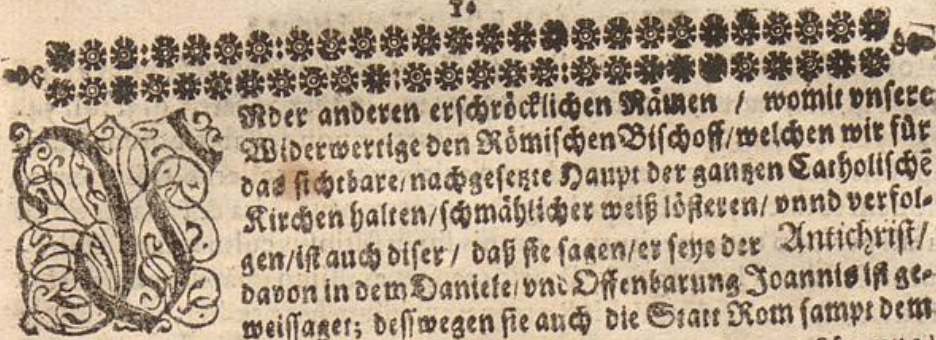 UNder anderen erschröcklichen Nämen / womit vnsere
Widerwertige den Römischen Bischoff/welchen wir für
das sichtbare/nachgesetzte Haupt der gantzen Catholischẽ
Kirchen halten/schmählicher weiß lösteren/ vnnd verfol-
gen/ist auch diser / daß sie sagen/er seye der Antichrist/
davon in dem Daniele/vnd Offenbarung Joannis ist ge-
weissaget; desswegen sie auch die Statt Rom sampt dem